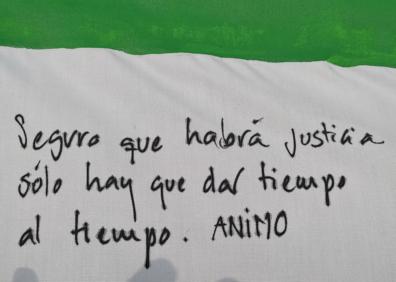 Seguro que habrá justicia
sólo hay que dar tiempo
al tiempo. ANiMO